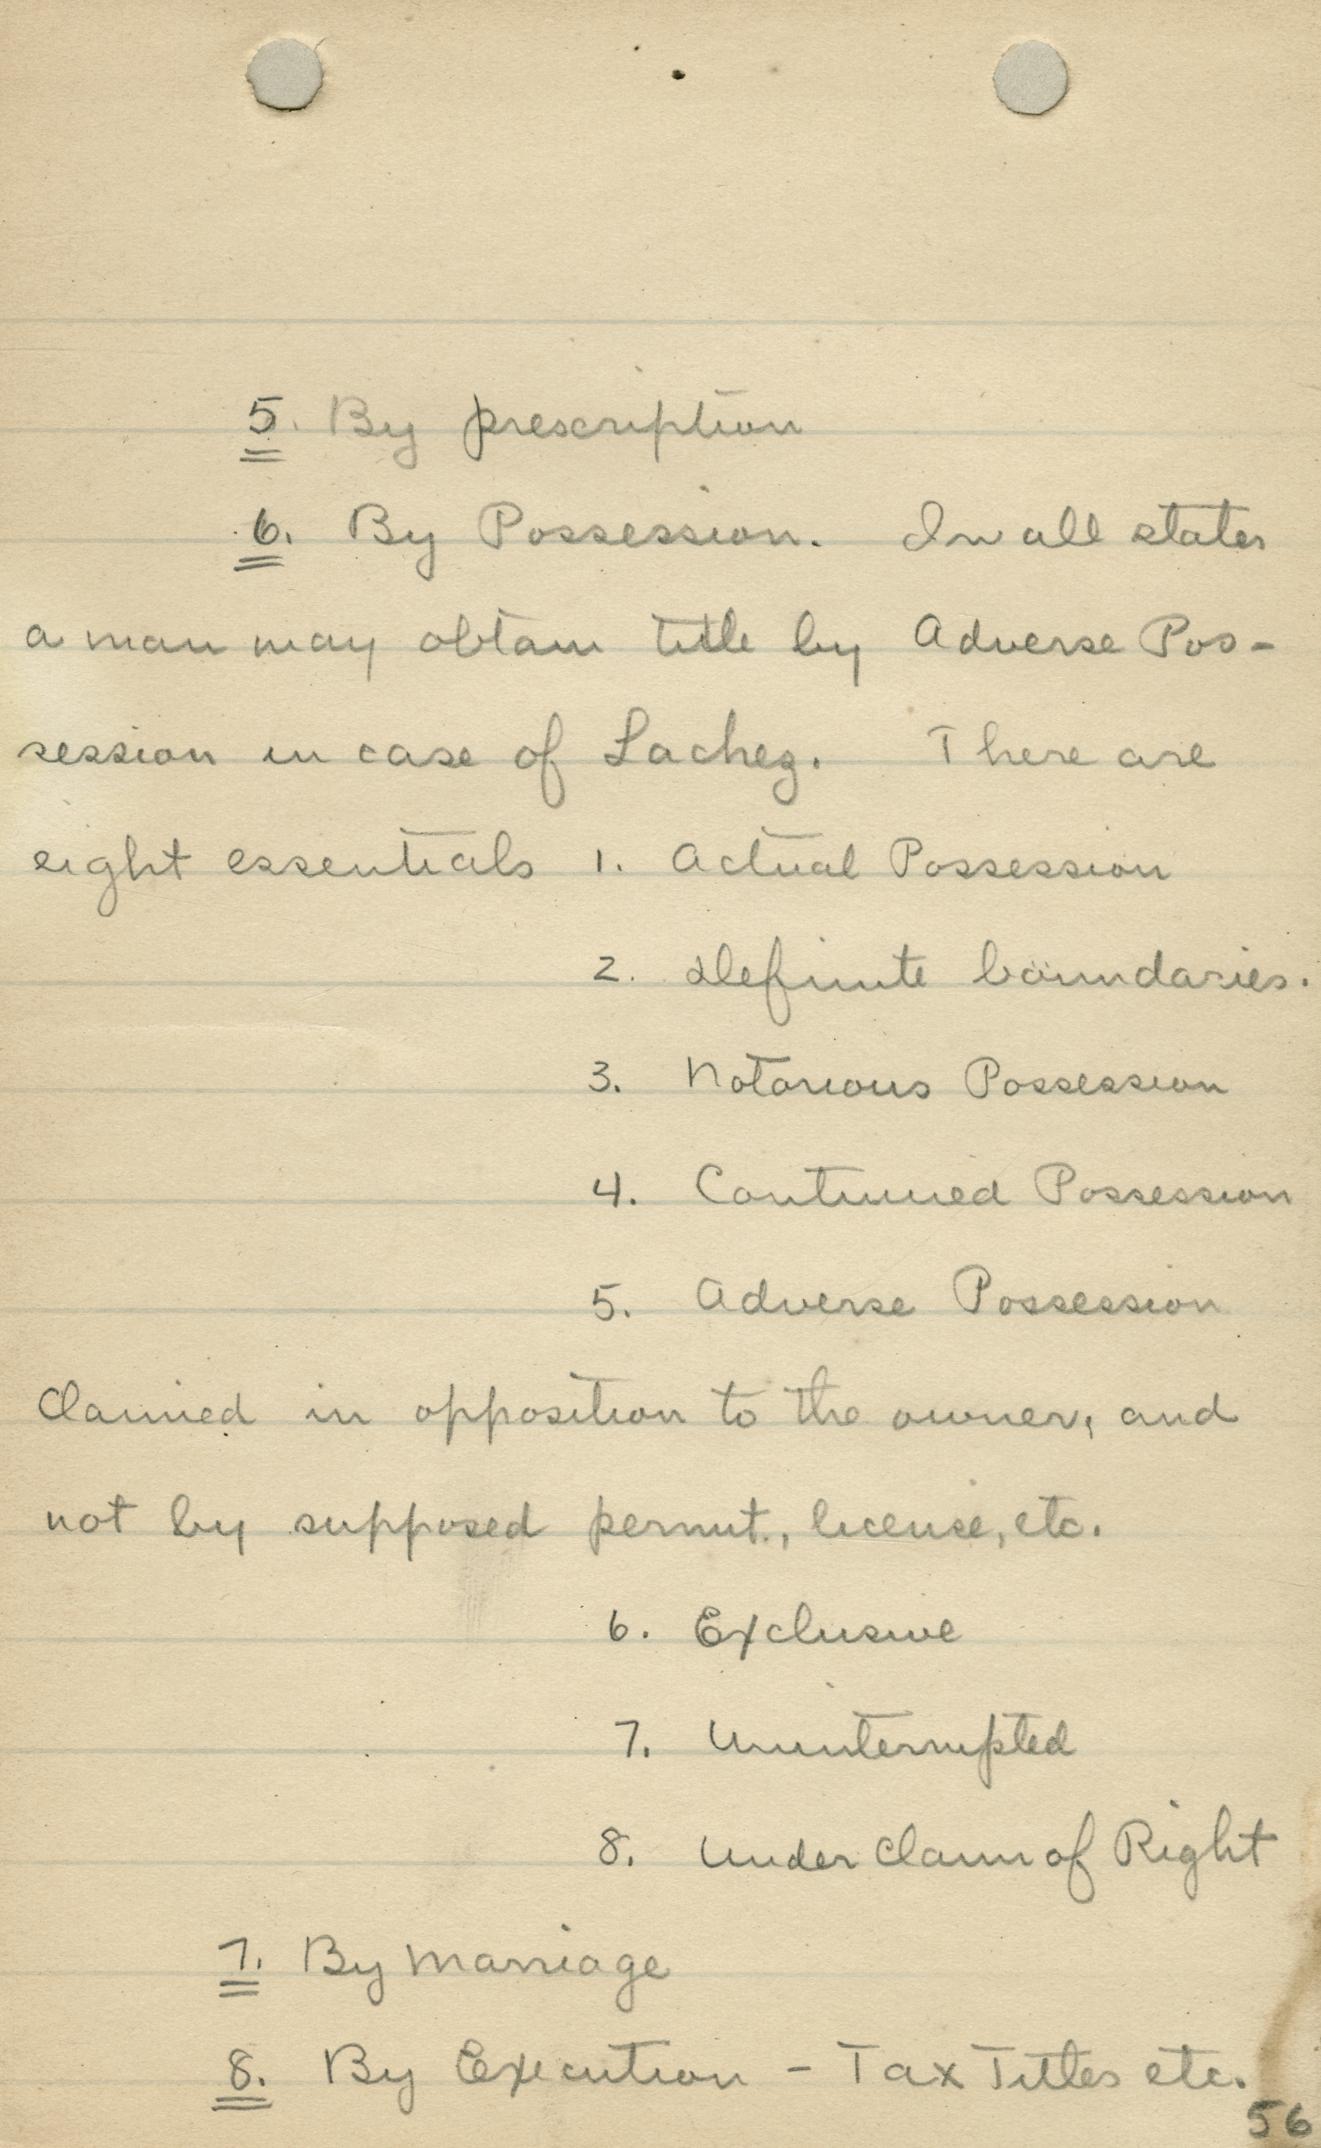 5. By prescription
6. By Possession. In all states
a man may obtain title by Adverse Pos-
session in case of Laches. There are
eight essentials 1. Actual Possession
2. Definite boundaries.
3. Notorious Possession
4. Continued Possession
5. Adverse Possession
Claimed in opposition to the owner, and
not by supposed permit., license, etc.
6. Exclusive
7. Uninterrupted
8. Under Claim of Right
7. By Marriage
8. By Execution - Tax Titles etc.
56